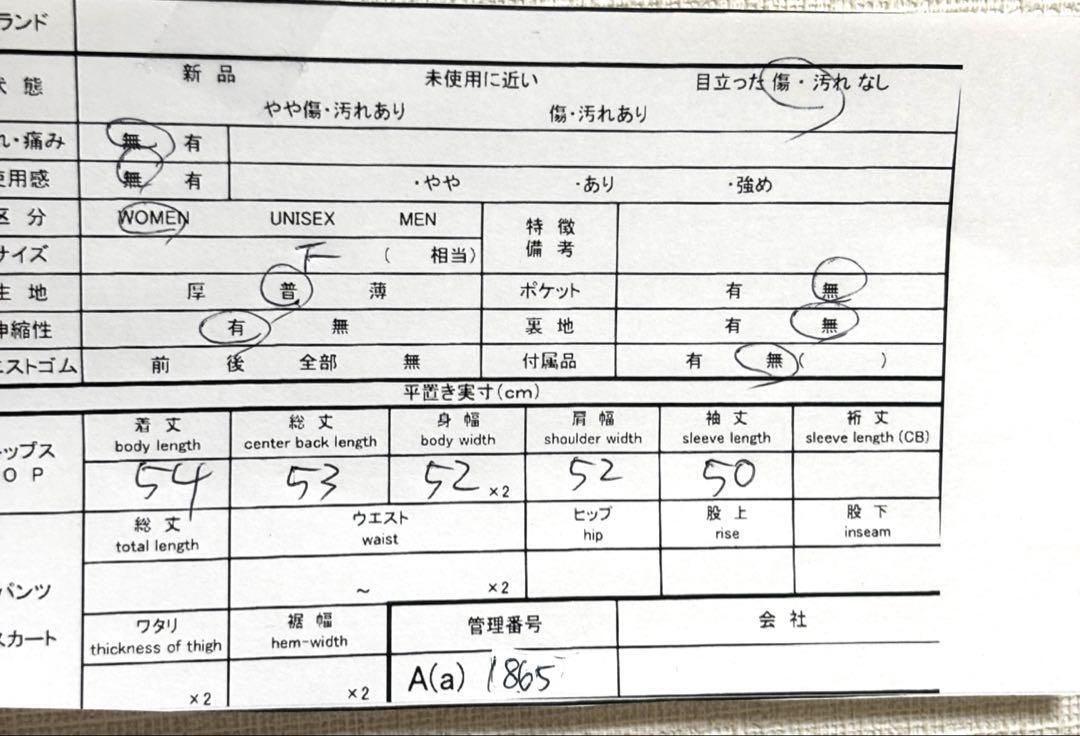 ランド
状態 新品 未使用に近い 目立った傷・汚れなし
やや傷・汚れあり 傷・汚れあり
れ・痛み 無 有
使用感 無 有 ・やや ・あり ・強め
区分 WOMEN UNISEX MEN 特徴
備考
サイズ F ( 相当)
生地 厚 普 薄 ポケット 有 無
伸縮性 有 無 裏地 有 無
エストゴム 前 後 全部 無 付属品 有 無( )
平置き実寸(cm)
ップス
OP
着丈 総丈 身幅 肩幅 袖丈 裄丈
body length center back length body width shoulder width sleeve length sleeve length (CB)
54 53 52 ×2 52 50
総丈 ウエスト ヒップ 股上 股下
total length waist hip rise inseam
パンツ ~ ×2
スカート ワタリ 裾幅 管理番号 会社
thickness of thigh hem-width
×2 ×2 A(a) 1865